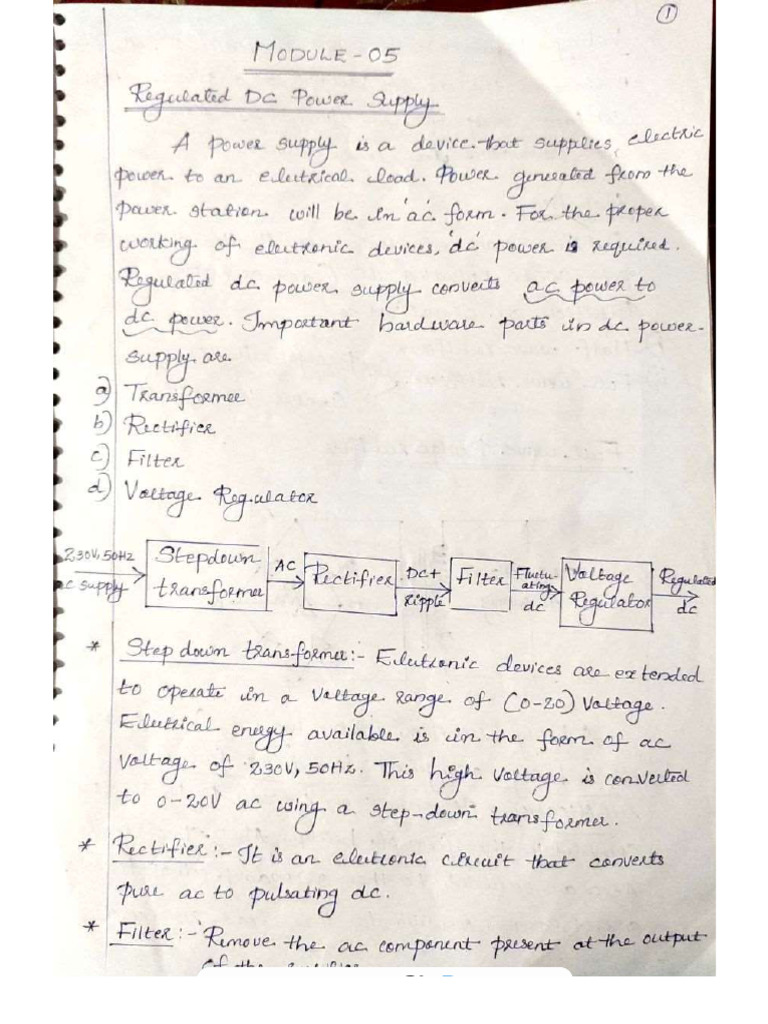 1
MODULE-05
Regulated DC Power Supply
A power supply is a device that supplies electric
power to an electrical load. Power generated from the
power station will be in 'ac' form. For the proper
working of electronic devices, 'dc' power is required.
Regulated dc power supply converts ac power to
dc power. Important hardware parts in dc power
supply are.
a) Transformer
b) Rectifier
c) Filter
d) Voltage Regulator
230V, 50Hz
ac supply
Stepdown
transformer
AC
Rectifier
DC+
ripple
Filter
Fluctu-
ating
dc
Voltage
Regulator
Regulated
dc
* Step down transformer:- Electronic devices are extended
to operate in a voltage range of (0-20) Voltage.
Electrical energy available is in the form of ac
voltage of 230V, 50Hz. This high voltage is converted
to 0-20V ac using a step-down transformer.
* Rectifier:- It is an electronic circuit that converts
pure ac to pulsating dc.
* Filter:- Remove the ac component present at the output
of the